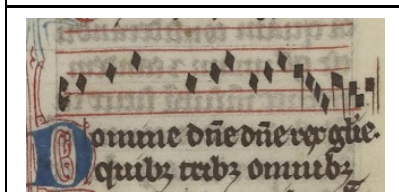 Domine dñe dñe rex glie.
quibꝫ tribꝫ omnibꝫ